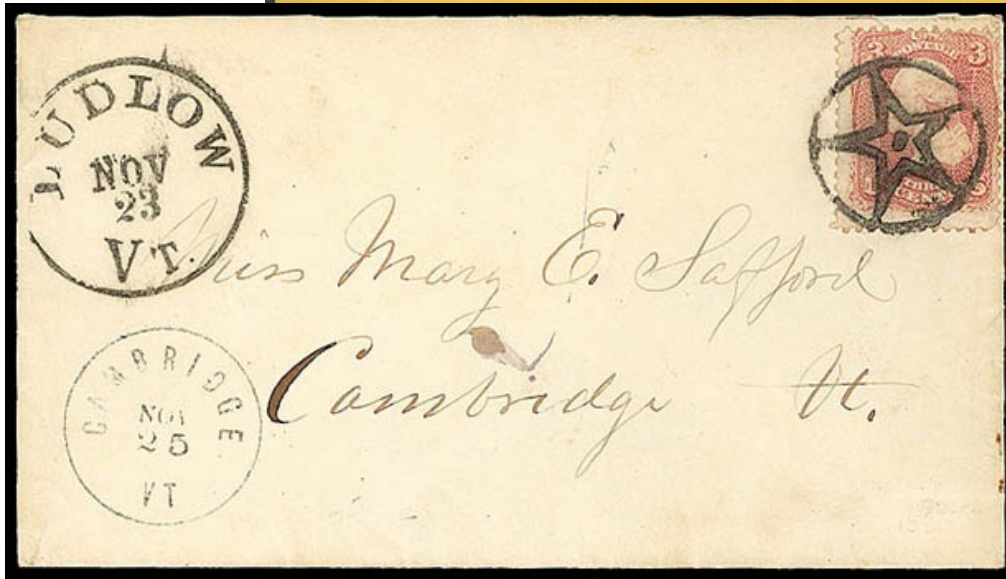 LUDLOW
NOV
23
VT.
3 POSTAGE 3
CENTS
Miss Mary E. Safford
Cambridge Vt.
CAMBRIDGE
NOV
25
VT